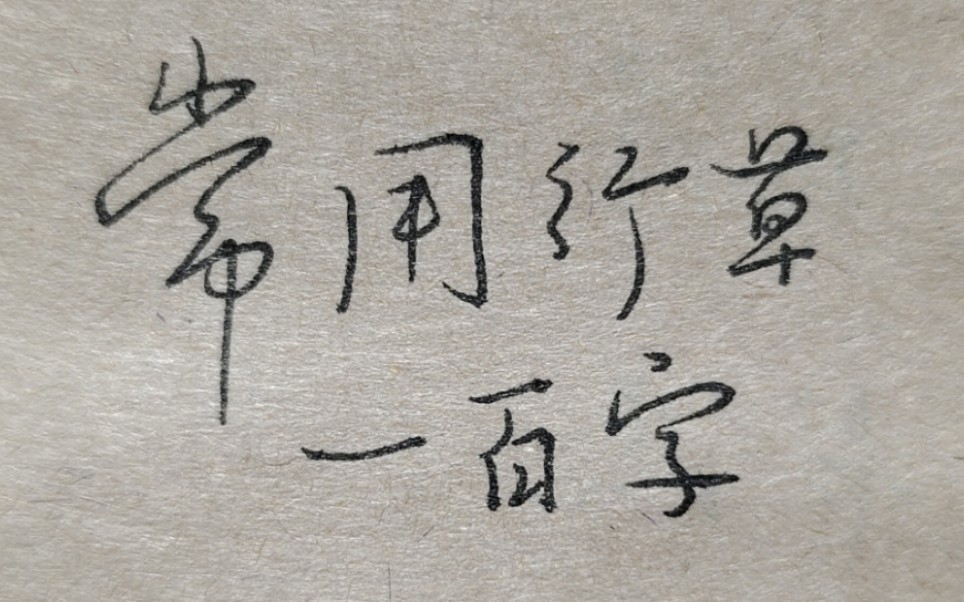 常用行草
一百字